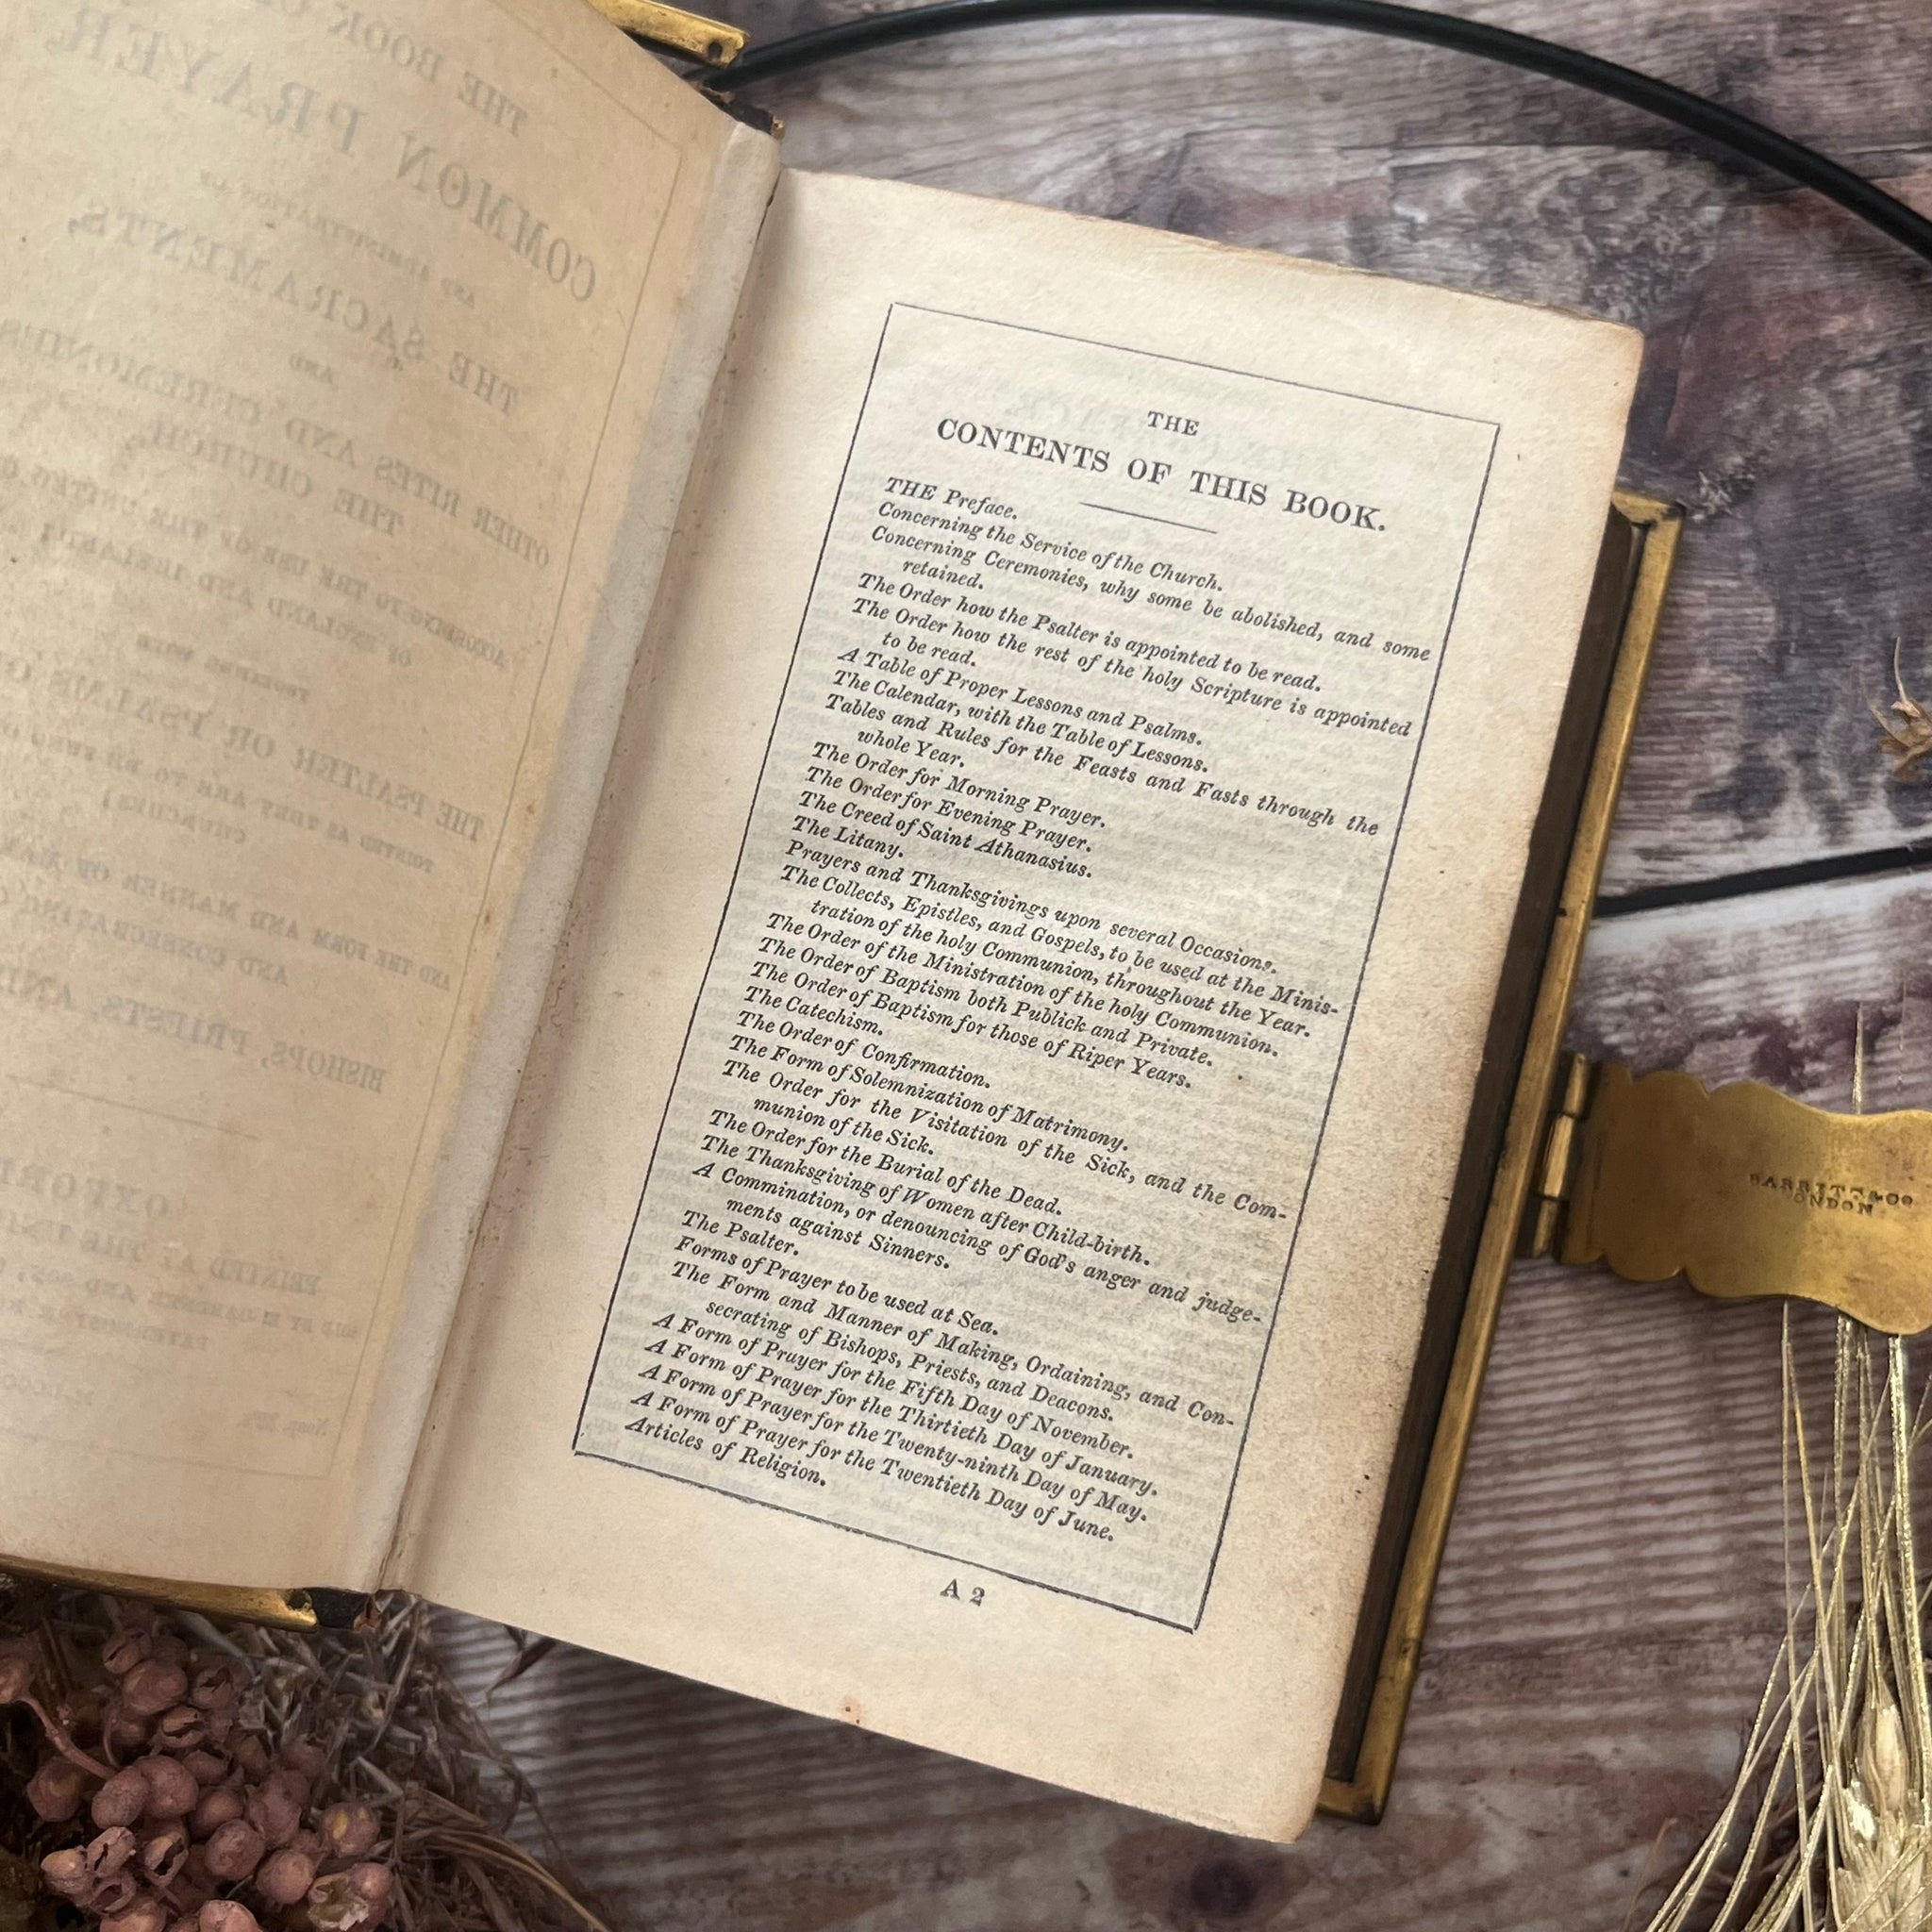 THE BOOK OF
COMMON PRAYER,
AND ADMINISTRATION OF
THE SACRAMENTS,
AND
OTHER RITES AND CEREMONIES
THE CHURCH,
ACCORDING TO THE USE OF THE UNITED
OF ENGLAND AND IRELAND:
TOGETHER WITH
THE PSALTER OR PSALMS
POINTED AS THEY ARE TO BE SUNG
CHURCHES:
AND THE FORM AND MANNER OF
AND CONSECRATING
BISHOPS, PRIESTS, AND
PRINTED AT THE
THE
CONTENTS OF THIS BOOK.
THE Preface.
Concerning the Service of the Church.
Concerning Ceremonies, why some be abolished, and some
retained.
The Order how the Psalter is appointed to be read.
The Order how the rest of the holy Scripture is appointed
to be read.
A Table of Proper Lessons and Psalms.
The Calendar, with the Table of Lessons.
Tables and Rules for the Feasts and Fasts through the
whole Year.
The Order for Morning Prayer.
The Order for Evening Prayer.
The Creed of Saint Athanasius.
The Litany.
Prayers and Thanksgivings upon several Occasions.
The Collects, Epistles, and Gospels, to be used at the Minis-
tration of the holy Communion, throughout the Year.
The Order of the Ministration of the holy Communion.
The Order of Baptism both Publick and Private.
The Order of Baptism for those of Riper Years.
The Catechism.
The Order of Confirmation.
The Form of Solemnization of Matrimony.
The Order for the Visitation of the Sick, and the Com-
munion of the Sick.
The Order for the Burial of the Dead.
The Thanksgiving of Women after Child-birth.
A Commination, or denouncing of God's anger and judge-
ments against Sinners.
The Psalter.
Forms of Prayer to be used at Sea.
The Form and Manner of Making, Ordaining, and Con-
secrating of Bishops, Priests, and Deacons.
A Form of Prayer for the Fifth Day of November.
A Form of Prayer for the Thirtieth Day of January.
A Form of Prayer for the Twenty-ninth Day of May.
A Form of Prayer for the Twentieth Day of June.
Articles of Religion.
A 2
BARRITT & CO
LONDON